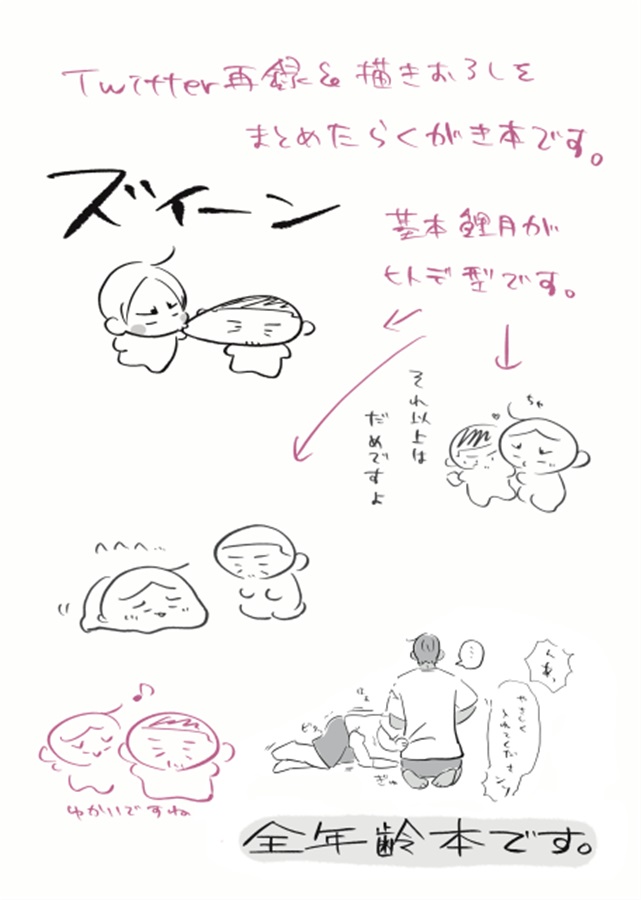 Twitter再録&描きおろしを
まとめたらくがき本です。
ズイーン
基本鯉月が
ヒトデ型です。
ちゅ
それ以上は
だめですよ
へへへ…
んあっ
やさしく
入れてくださ
ぎゅ
ゆかいですね
全年齢本です。